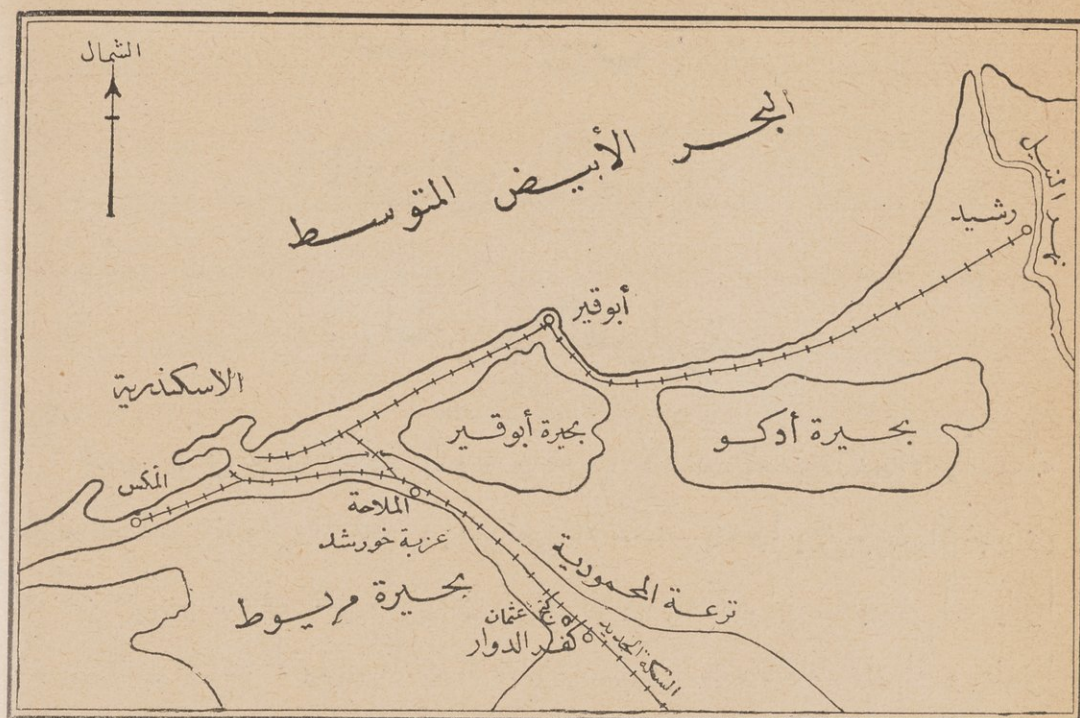 الشمال
البحر الأبيض المتوسط
نهر النيل
رشيد
أبوقير
الاسكندرية
بحيرة أبوقير
بحيرة أدكو
المكس
الملاحة
عزبة خورشد
بحيرة مريوط
ترعة المحمودية
كنج عثمان
كفر الدوار
السكة الحديد